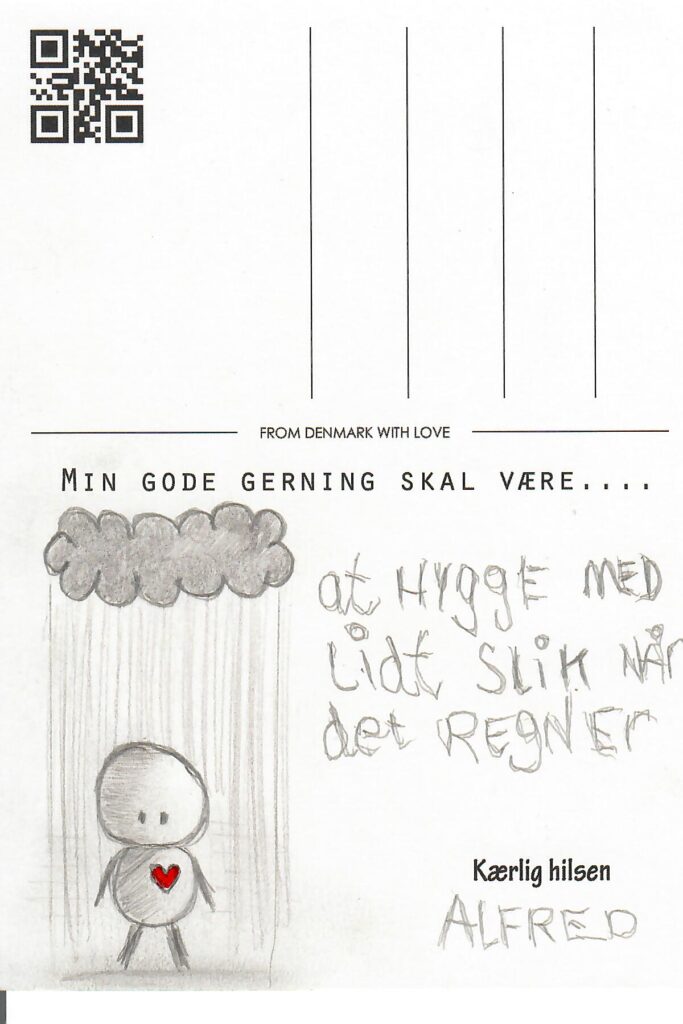 FROM DENMARK WITH LOVE
MIN GODE GERNING SKAL VÆRE....
at HYggE MED
Lidt SLiK NÅr
det REgNEr
Kærlig hilsen
ALFRED